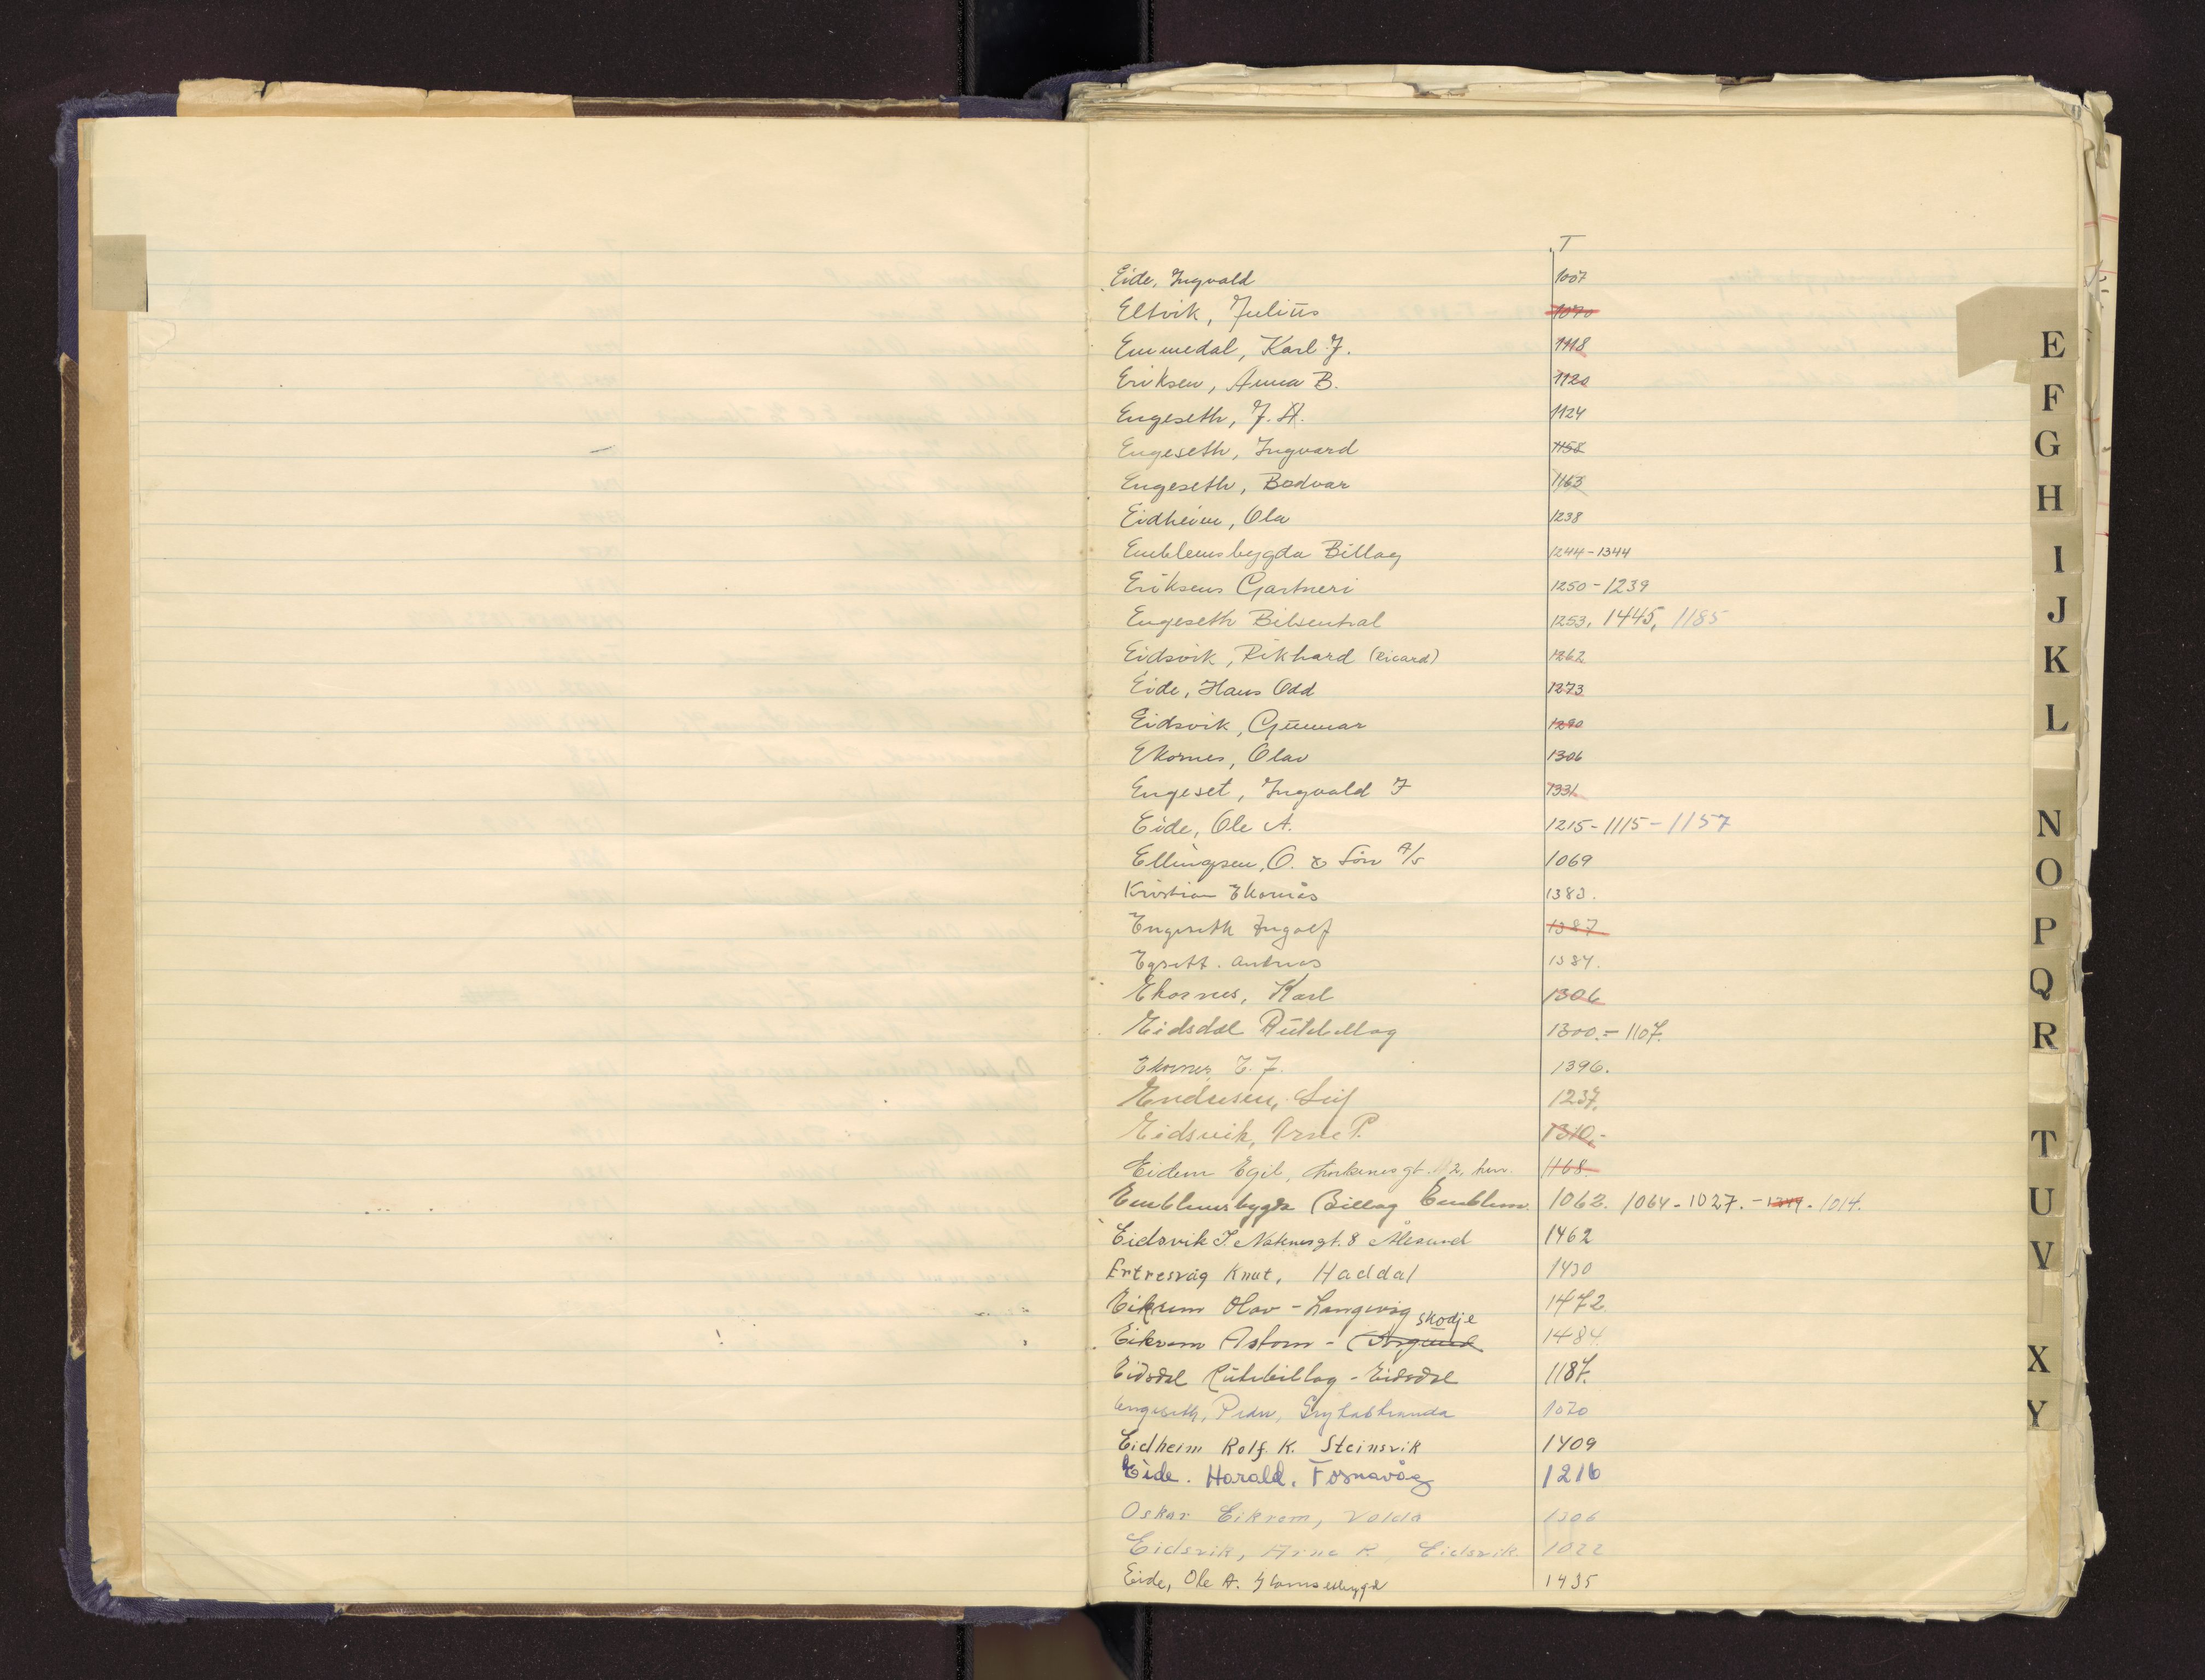 T
Eide, Ingvald 1007
Eltvik, Julius 1070
Emmedal, Karl J. 1118
Eriksen, Anna B. 1120
Engeseth, J. A. 1124
Engeseth, Ingvard 1158
Engeseth, Bodvar 1163
Eidheim, Ola 1238
Emblemsbygda Billag 1244-1344
Eriksens Gartneri 1250-1239
Engeseth Bilsentral 1253, 1445, 1185
Eidsvik, Rikhard (Ricard) 1262
Eide, Hans Odd 1273
Eidsvik, Gunnar 1290
Ekornes, Olav 1306
Engeset, Ingvald J 1331
Eide, Ole A. 1215-1115-1157
Ellingsen, O. & Sön A/s 1069
Kristian Ekornås 1383.
Engeseth Ingolf 1387
Egsett. Andreas 1384.
Ekornes, Karl 1306
Eidsdal Rutebillag 1300.-1107.
Ekornes, E. J. 1396.
Endresen, Leif 1237.
Eidsvik, Arne P. 1310.-
Eidem Egil, 2, her. 1168
Emblemsbygda Billag Emblem. 1062. 1064-1027.-1349-1014.
Eidsvik J. gt. 8 Ålesund 1462
Ertresvåg Knut, Haddal 1430
Eikrem Olav - Langevåg 1472
Skodje
Eikrem Astom - 1484
Eidsdal Rutebillag - Eidsdal 1187.
Engeseth, Peder, Grytastranda 1070
Eidheim Rolf. K. Steinsvik 1409
Eide. Harald. Fosnavåg 1216
Oskar Eikrem, Volda 1306
Eidsvik, Arne P. Eidsvik 1022
Eide, Ole A. 1435
E
F
G
H
I
J
K
L
N
O
P
Q
R
T
U
V
X
Y